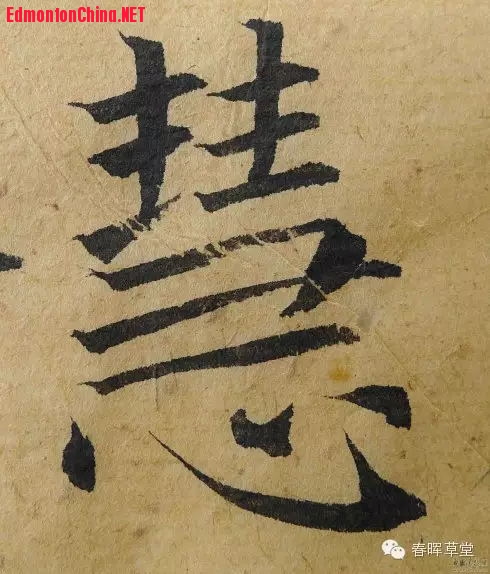 EdmontonChina.NET
慧
春晖草堂